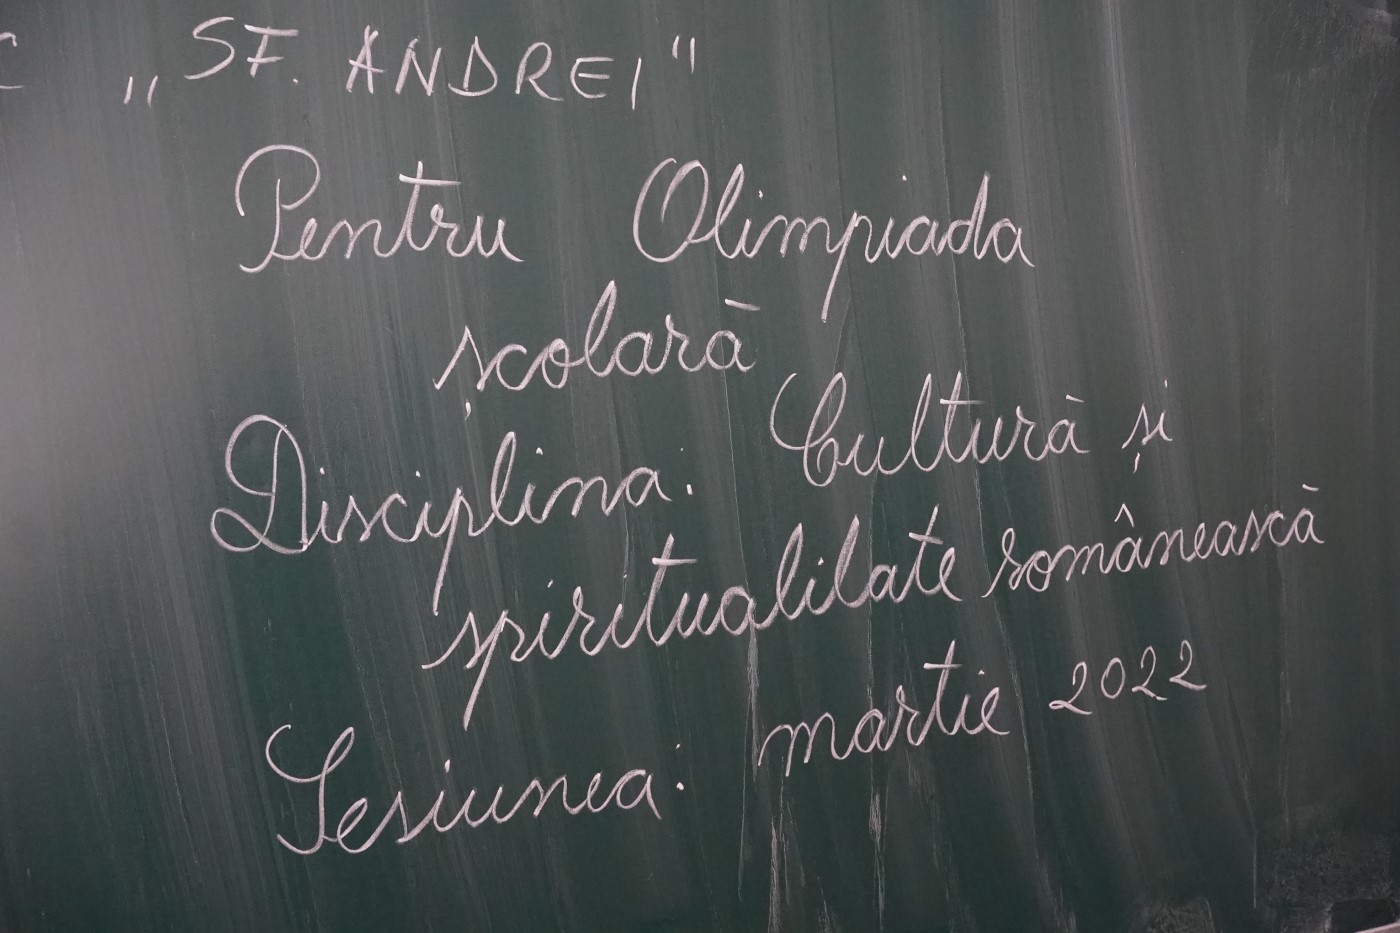 „SF. ANDREI"
Pentru Olimpiada
școlară
Disciplina: Cultură și
spiritualitate românească
Sesiunea: martie 2022